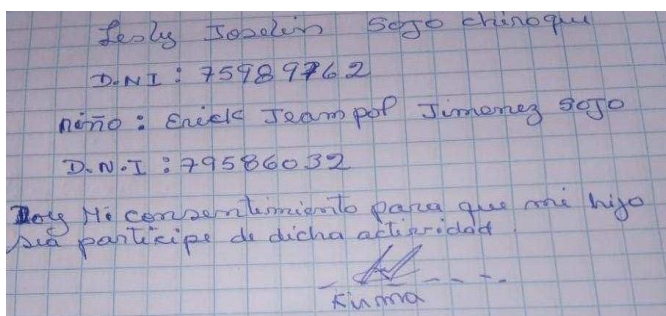 Lesly Joselin Sojo chiroque
D.NI : 75989762
niño : Erick Jeampol Jimenez sojo
D.N.I : 79586032
Doy Mi consentimiento para que mi hijo
sea participe de dicha actividad
Firma